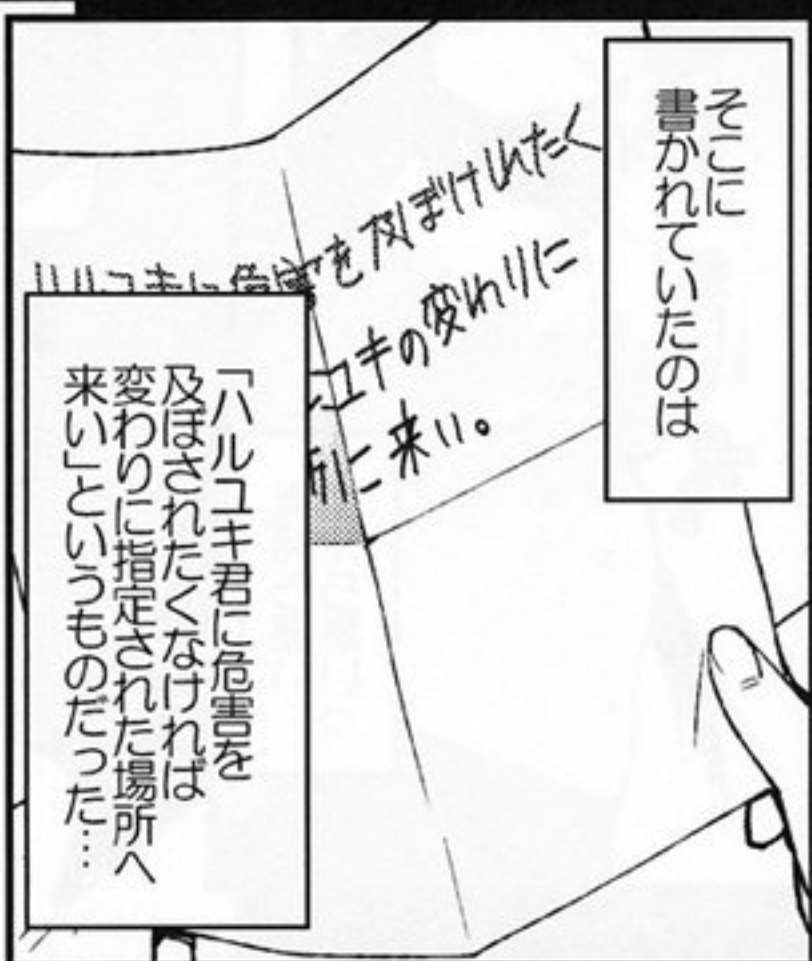 そこに
書かれていたのは
を及ぼけしれたく
ユキの変わりに
に来い。
「ハルユキ君に危害を
及ぼされたくなければ
変わりに指定された場所へ
来い」というものだった…